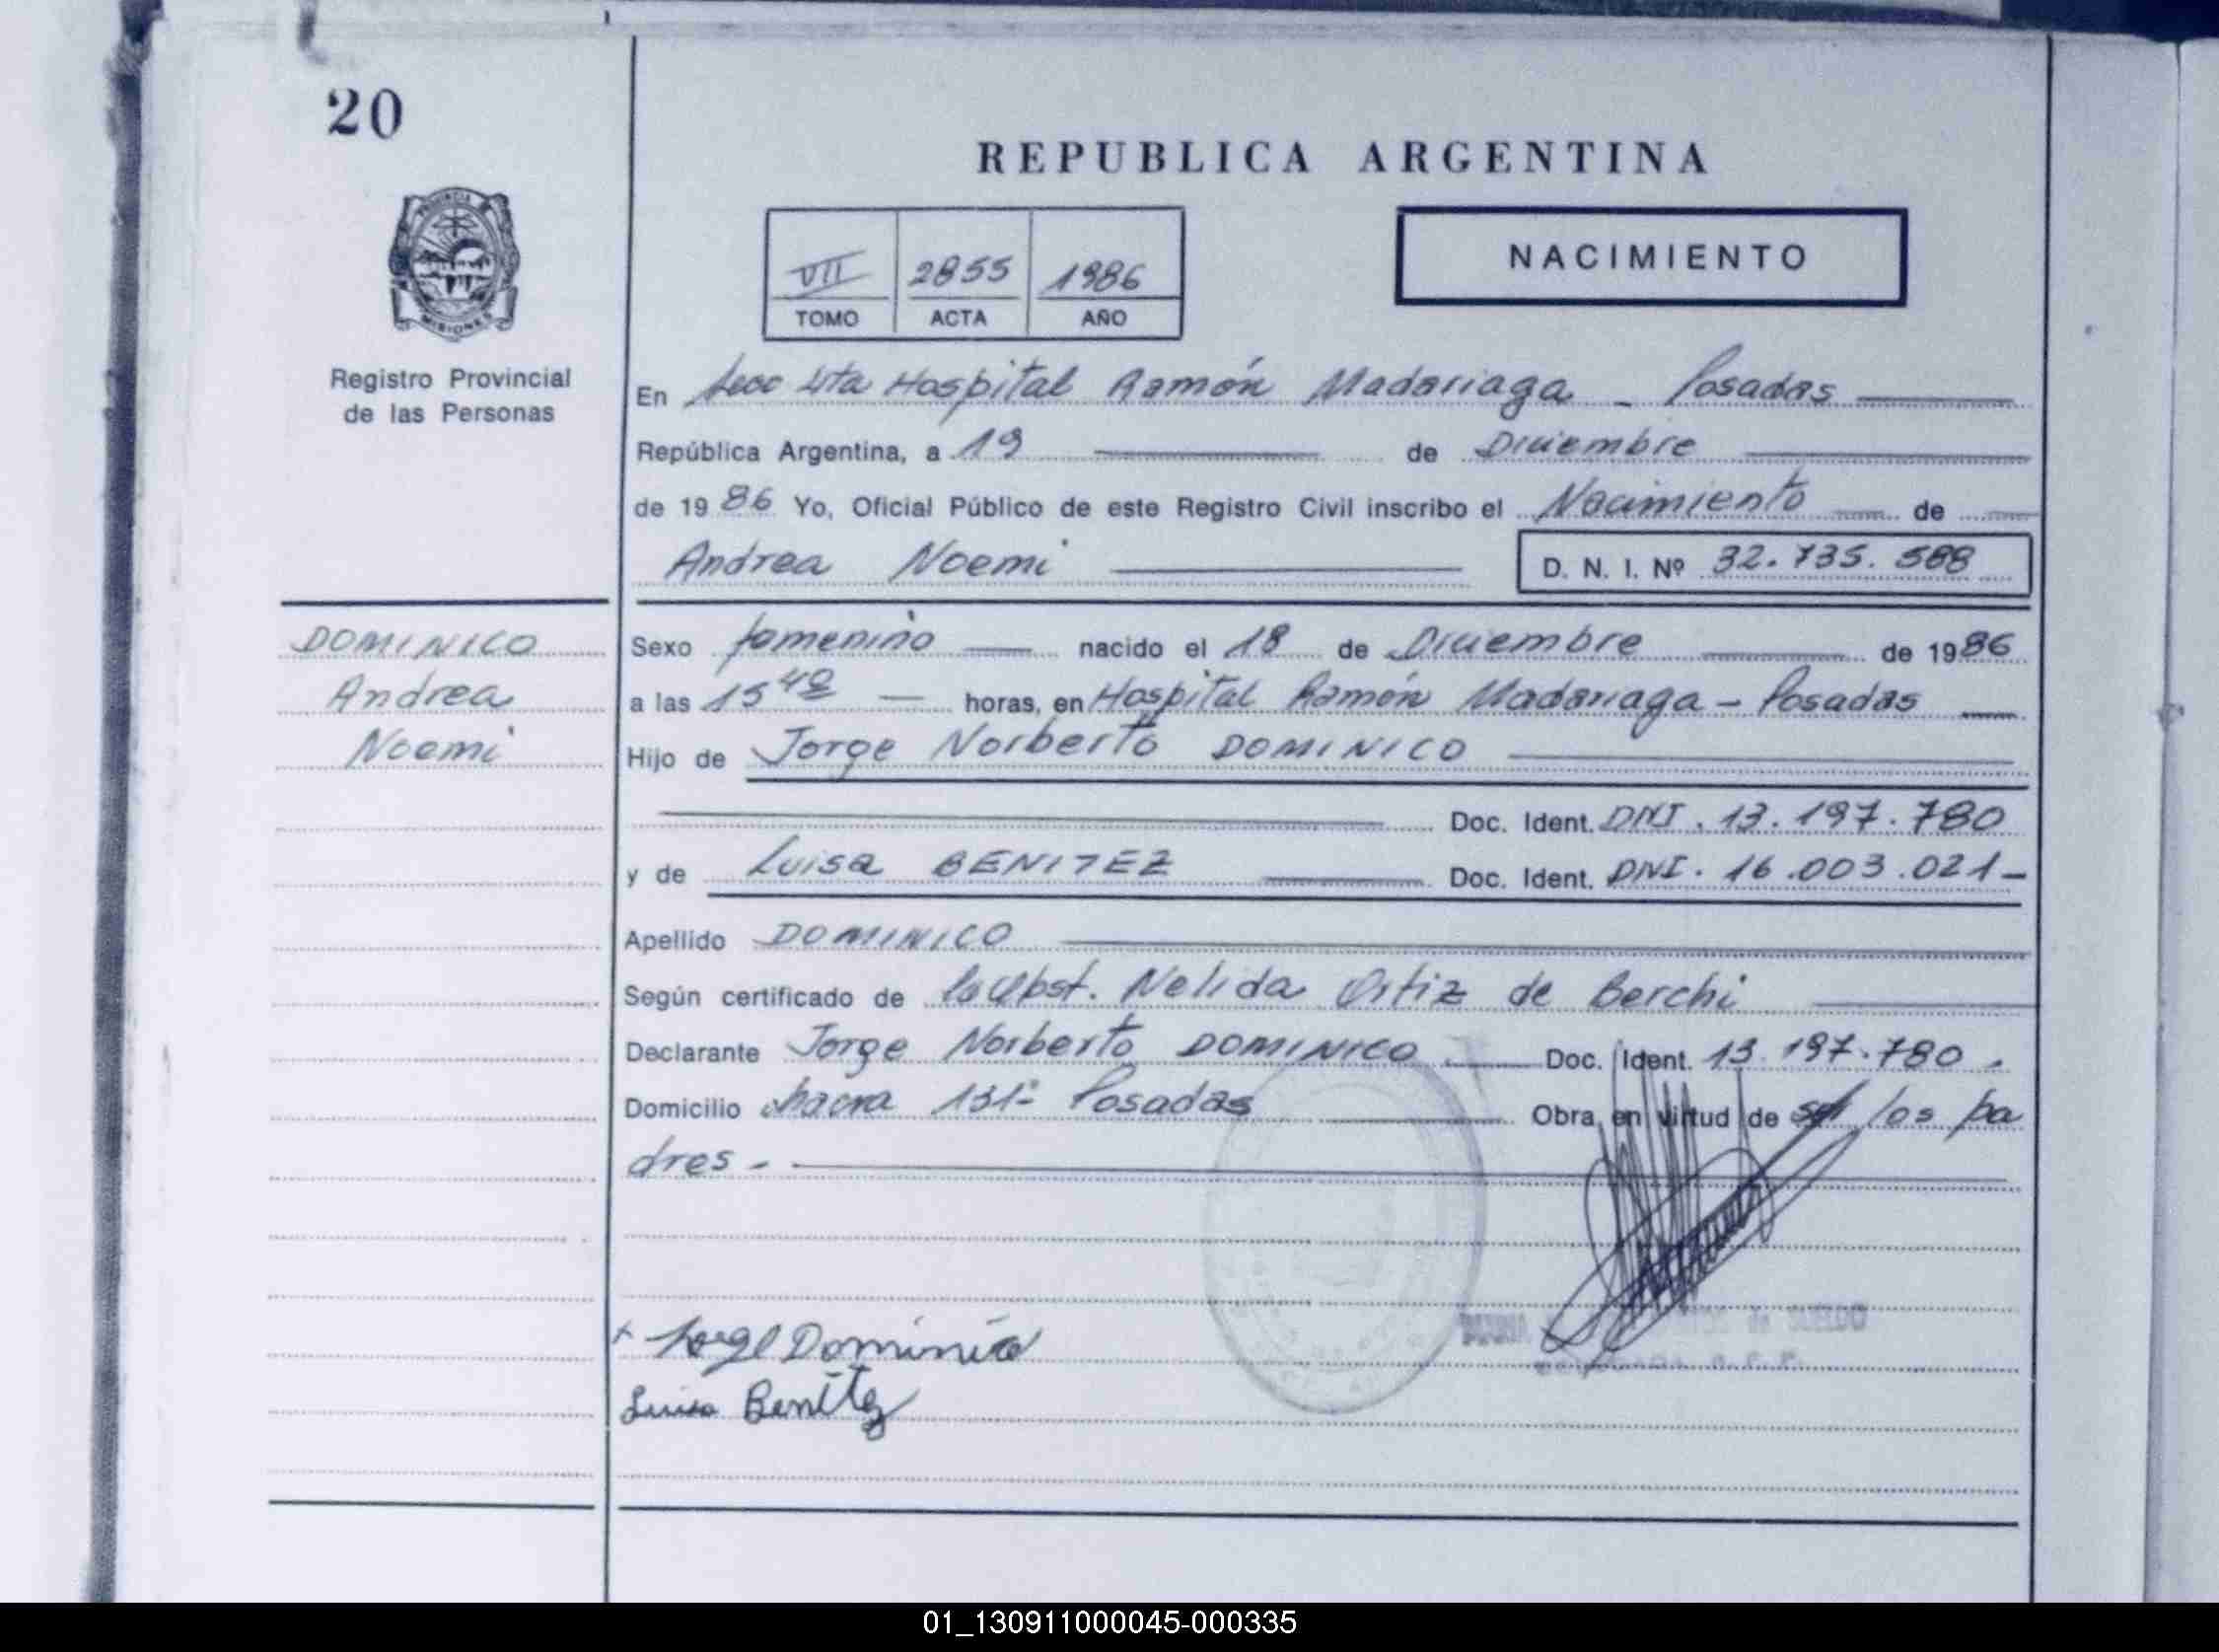 20
REPUBLICA ARGENTINA
NACIMIENTO
VII 2855 1986
TOMO ACTA AÑO
PROVINCIA DE
MISIONES
Registro Provincial
de las Personas
En Secc 4ta Hospital Ramón Madariaga - Posadas
República Argentina, a 19 de Diciembre
de 1986 Yo, Oficial Público de este Registro Civil inscribo el Nacimiento de
Andrea Noemi
D. N. I. Nº 32.735.588
DOMINICO
Andrea
Noemi
Sexo femenino nacido el 18 de Diciembre de 1986
a las 15 40 horas, en Hospital Ramón Madariaga - Posadas
Hijo de Jorge Norberto DOMINICO
Doc. Ident. DNI. 13.197.780
y de Luisa BENITEZ Doc. Ident. DNI. 16.003.021-
Apellido DOMINICO
Según certificado de la Obst. Nelida Ortiz de Berchi
Declarante Jorge Norberto DOMINICO Doc. Ident. 13.197.780.
Domicilio chacra 131- Posadas Obra en virtud de ser los pa
dres.-
Jorge Dominico
Luisa Benítez
01_130911000045-000335